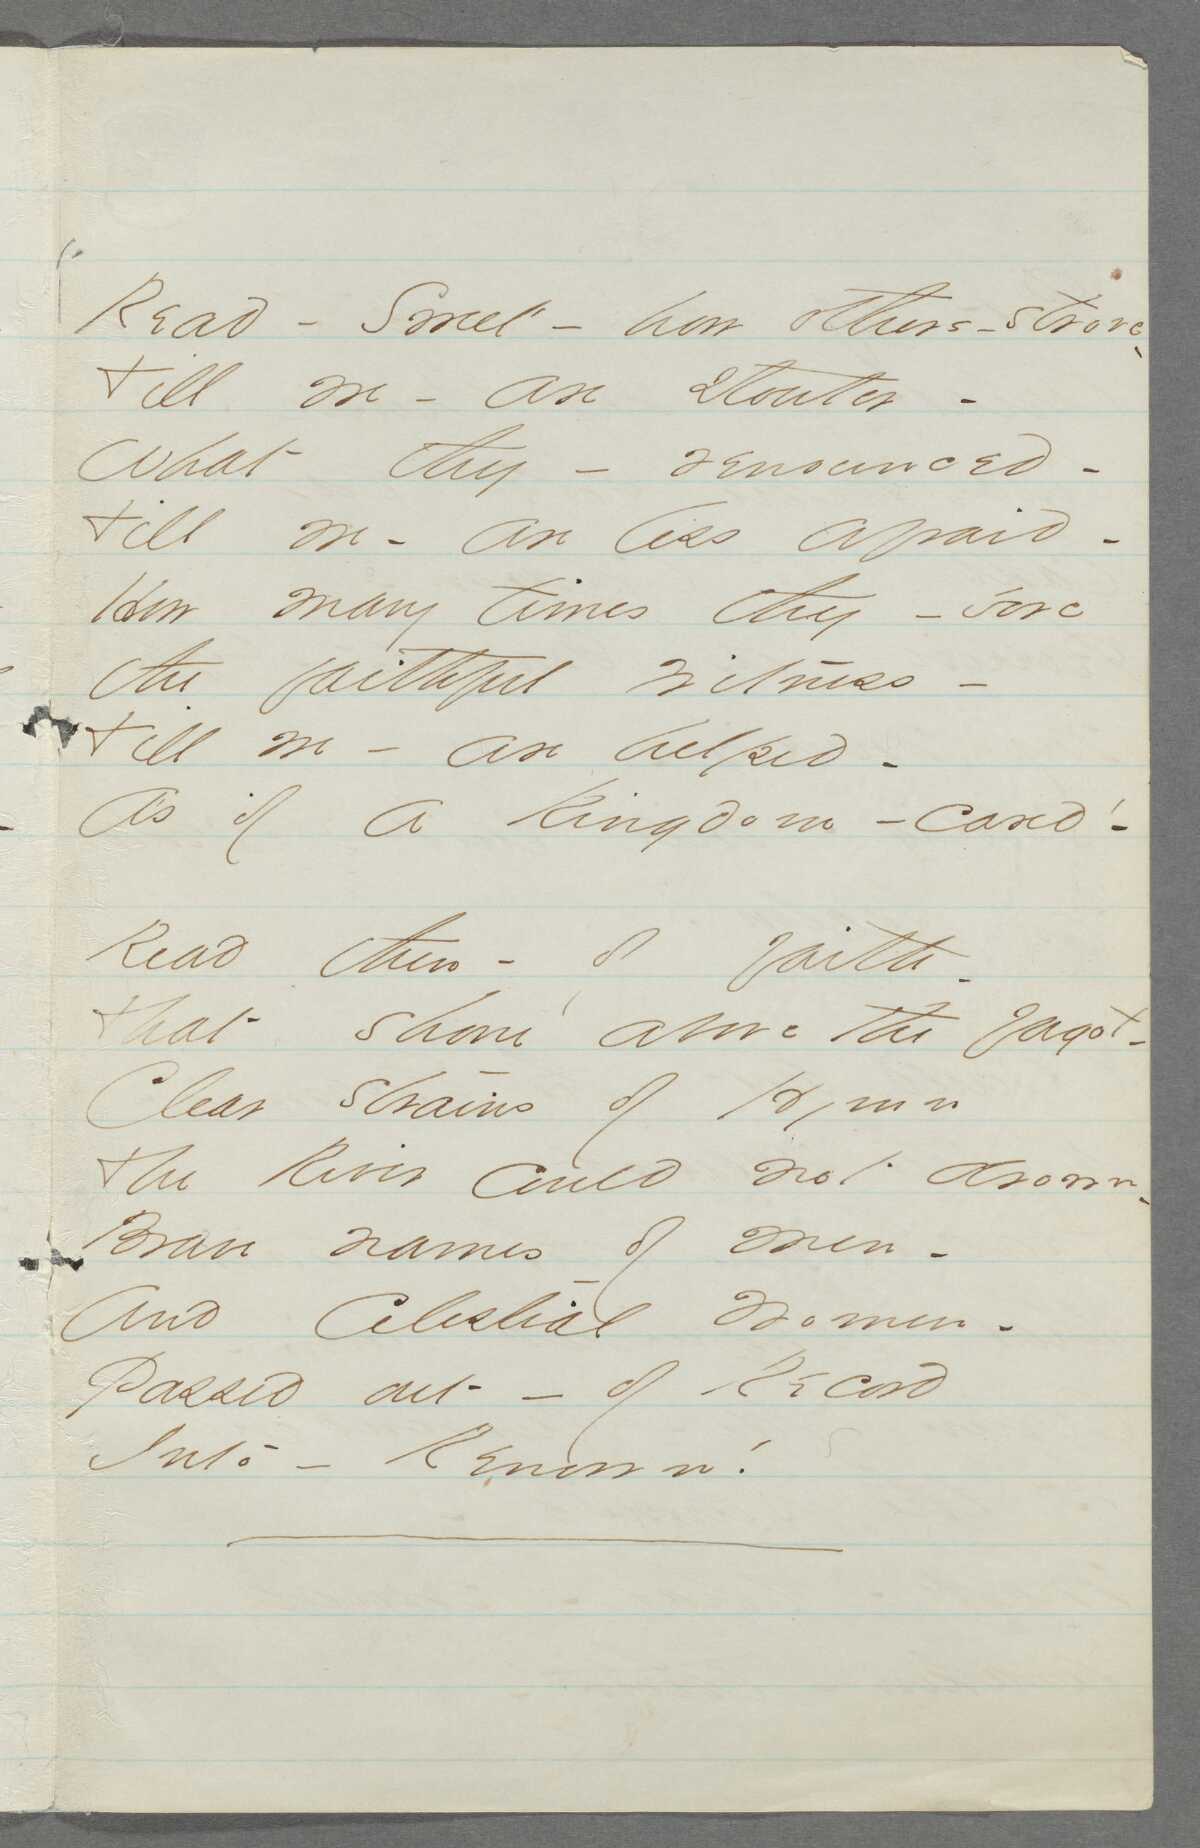 Read - Sweet - how others - strove -
Till we - are stouter -
What they - renounced -
Till we - are less afraid -
How many times they - bore
the faithful witness -
Till we - are helped -
As if a Kingdom - cared!

Read then - of faith -
That shone above the fagot -
Clear strains of Hymn
The River could not drown -
Brave names of Men -
And Celestial Women -
Passed out - of Record
Into - Renown!